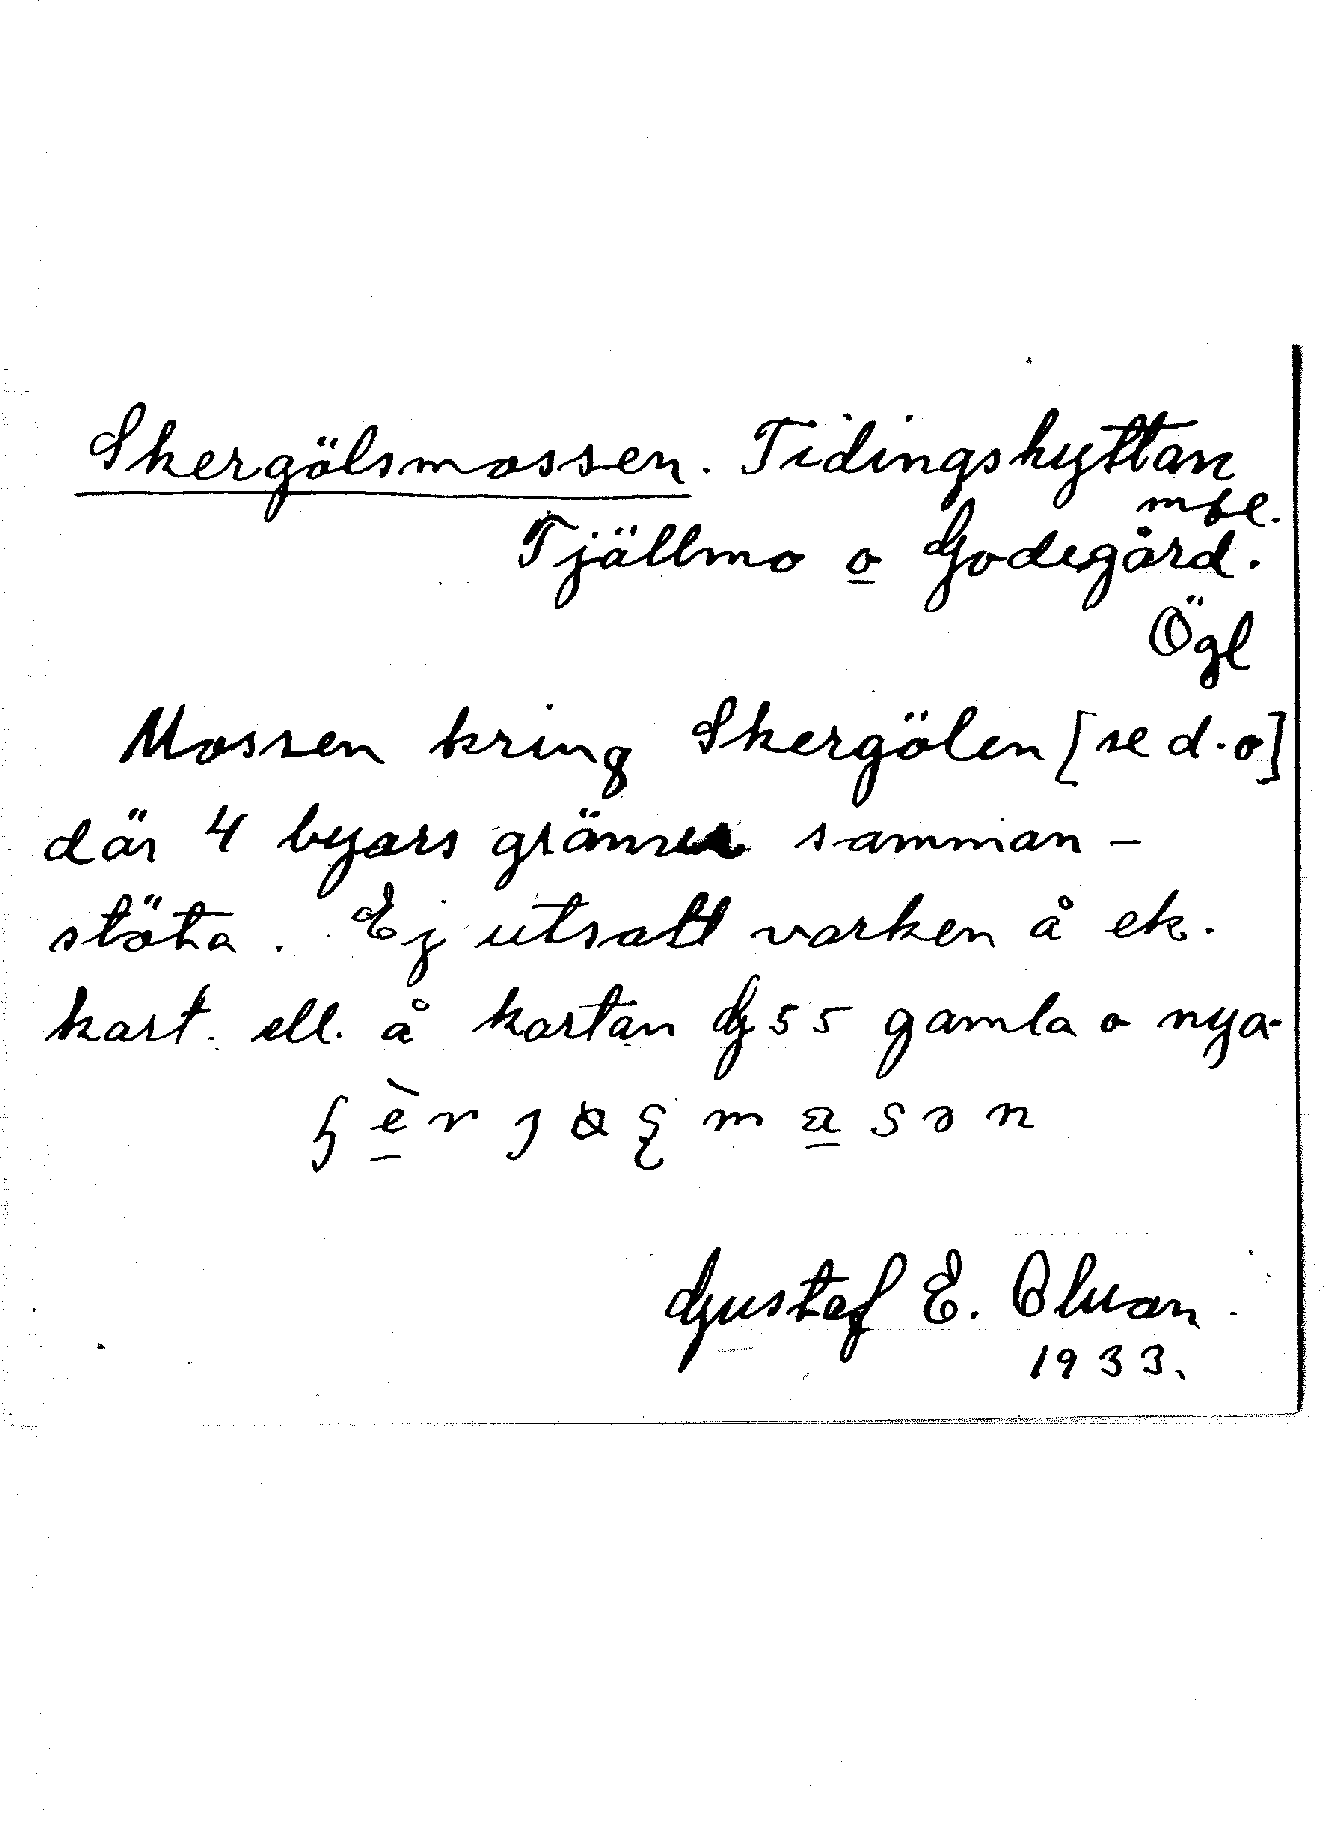 Skergölsmossen. Tidingshyttan
mfl.
Tjällmo o Godegård.
Ögl
Mossen kring Skergölen [se d.o]
där 4 byars gränser samman-
stöta. Ej utsatt varken å ek.
kart. ell. å kartan G 55 gamla o nya.
Gustaf E.
1933.